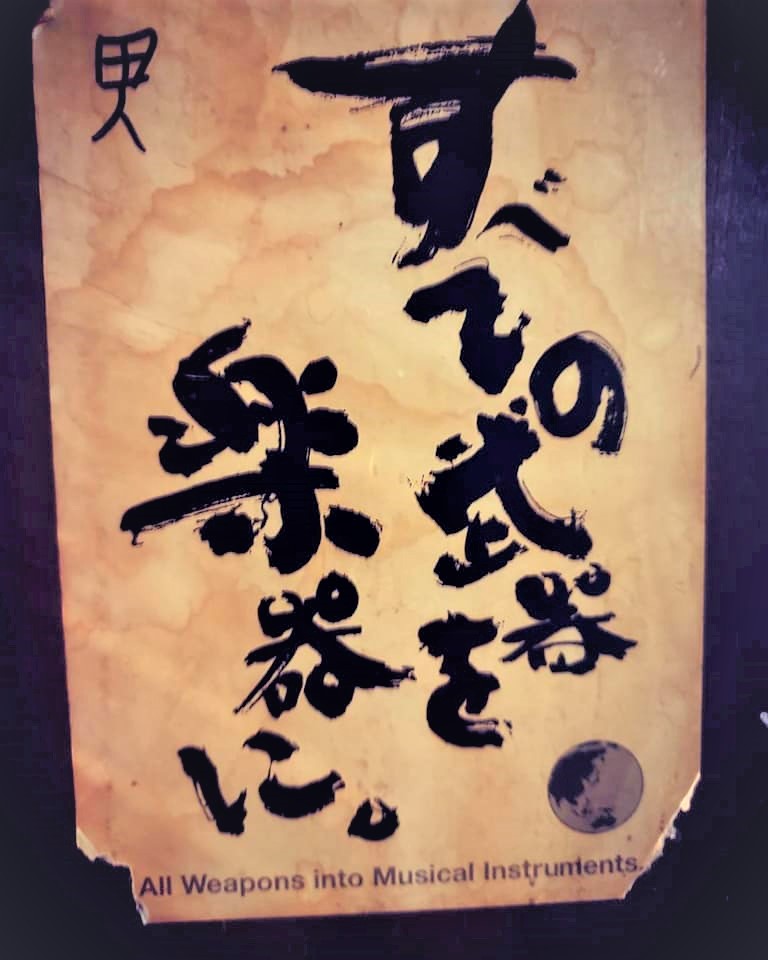 すべての武器を
楽器に。
男
All Weapons into Musical Instruments.